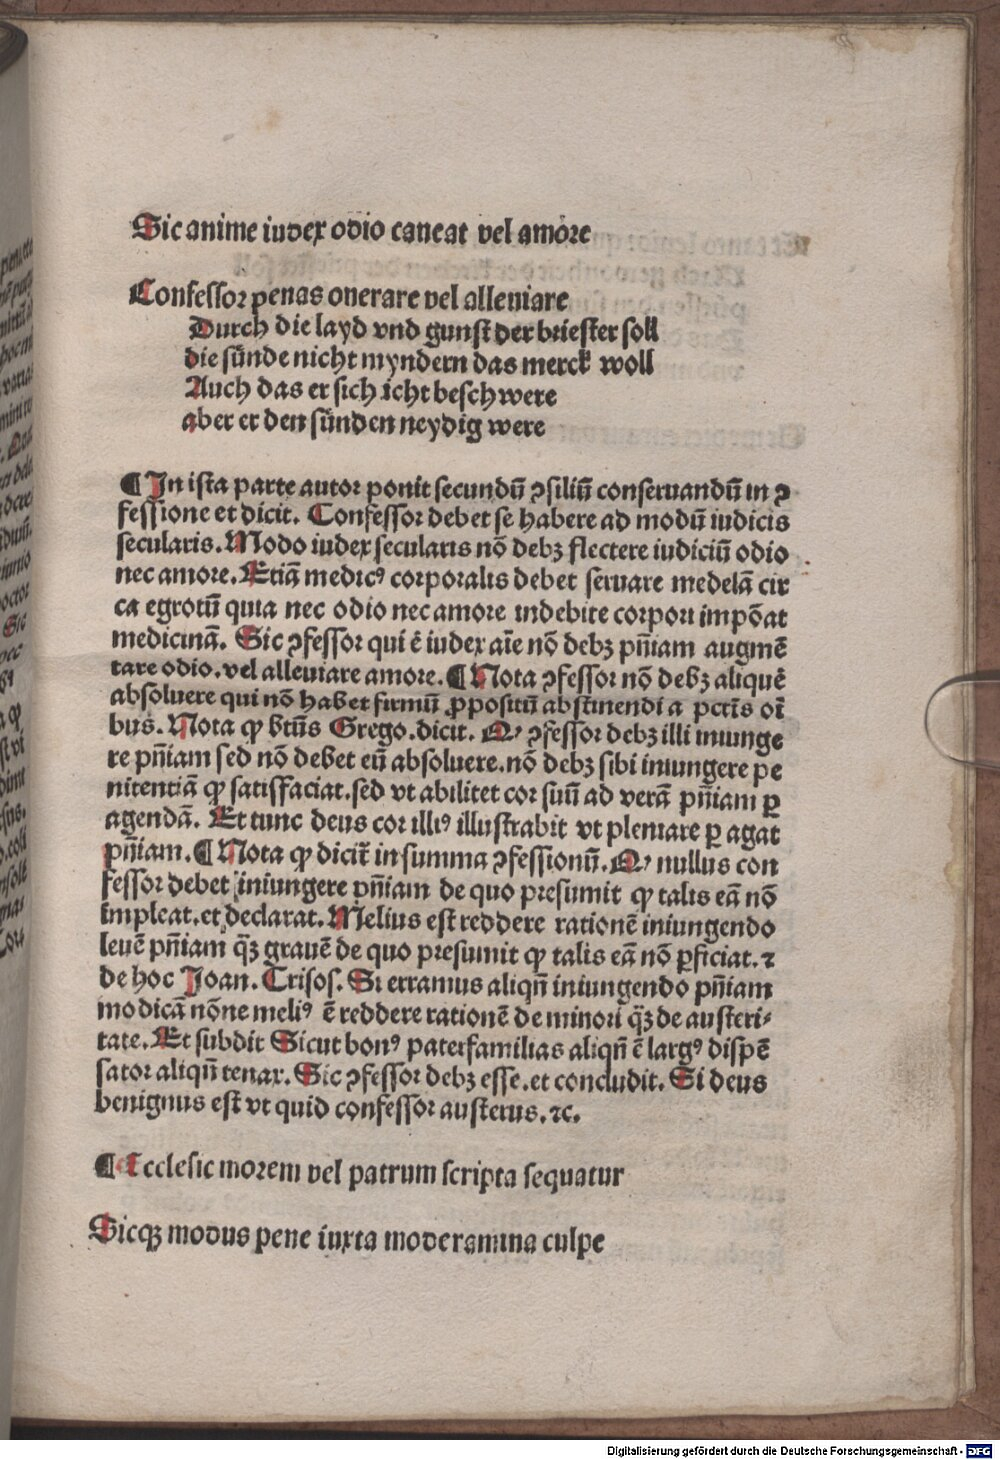 Sic anime iudex odio caueat vel amore
Confessor penas onerare vel alleuiare
Durch die layd vnd gunst der briester soll
die sünde nicht myndern das merck woll
Auch das er sich icht beschwere
aber er den sünden neydig were
¶ In ista parte autor ponit secundū ꝯsiliū conseruandū in ꝯ
fessione et dicit. Confessor debet se habere ad modū iudicis
secularis. Modo iudex secularis nō debꝫ flectere iudiciū odio
nec amore. Etiā medicꝰ corporalis debet seruare medelā cir
ca egrotū quia nec odio nec amore indebite corpori impōat
medicinā. Sic ꝯfessor qui ē iudex aīe nō debꝫ pn̄iam augmē
tare odio. vel alleuiare amore. ¶ Nota ꝯfessor nō debꝫ aliquē
absoluere qui nō habet firmū ꝓpositū abstinendi a pctīs oī
bus. Nota ꝙ btūs Grego. dicit. Qꝭ ꝯfessor debꝫ illi iniunge
re pn̄iam sed nō debet eū absoluere. nō debꝫ sibi iniungere pe
nitentiā ꝙ satisfaciat. sed vt abilitet cor suū ad verā pn̄iam ꝑ
agendā. Et tunc deus cor illiꝰ illustrabit vt pleniare ꝑ agat
pn̄iam. ¶ Nota ꝙ dicit̄ in summa ꝯfessionū. Qꝭ nullus con
fessor debet iniungere pn̄iam de quo presumit ꝙ talis eā nō
impleat. et declarat. Melius est reddere rationē iniungendo
leuē pn̄iam q̄ꝫ grauē de quo presumit ꝙ talis eā nō ꝑficiat. ⁊
de hoc Joan. Crisos. Si erramus aliqn̄ iniungendo pn̄iam
modicā nōne meliꝰ ē reddere rationē de minori q̄ꝫ de austeri⸗
tate. Et subdit Sicut bonꝰ paterfamilias aliqn̄ ē largꝰ dispē
sator aliqn̄ tenax. Sic ꝯfessor debꝫ esse. et concludit. Si deus
benignus est vt quid confessor austerus. ⁊c.
¶ Ecclesie morem vel patrum scripta sequatur
Sicqꝫ modus pene iuxta moderamina culpe
Digitalisierung gefördert durch die Deutsche Forschungsgemeinschaft - DFG